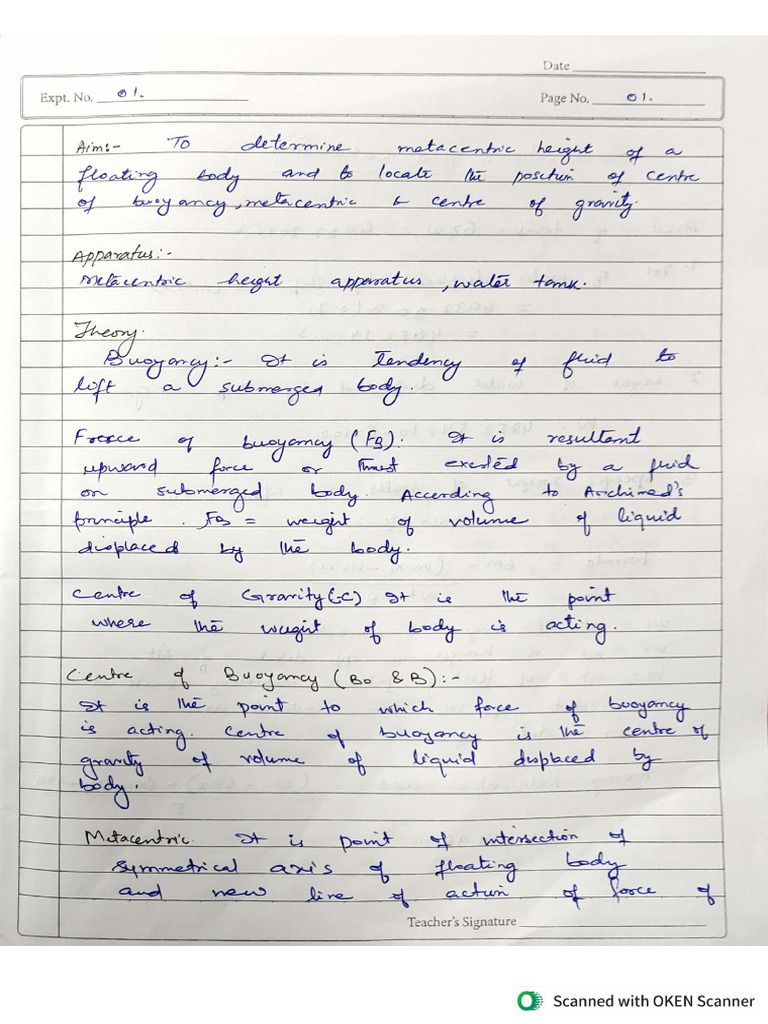 Date
Expt. No. 01.
Page No. 01.
Aim:- To determine metacentric height of a
floating body and to locate the position of centre
of buoyancy, metacentric & centre of gravity.
Apparatus:-
Metacentric height apparatus, water tank.
Theory.
Buoyancy:- It is tendency of fluid to
loft a submerged body.
Forece of buoyancy (FB): It is resultant
upward force or thrust exerted by a fluid
on submerged body. According to Archimed's
principle. FB = weight of volume of liquid
displaced by the body.
Centre of Gravity (C) It is the point
where the weight of body is acting.
Centre of Buoyancy (Bo & B):-
It is the point to which force of buoyancy
is acting. Centre of buoyancy is the centre of
gravity of volume of liquid displaced by
body.
Metacentric. It is point of intersection of
symmetrical axis of floating body
and new line of action of force of
Teacher's Signature
Scanned with OKEN Scanner